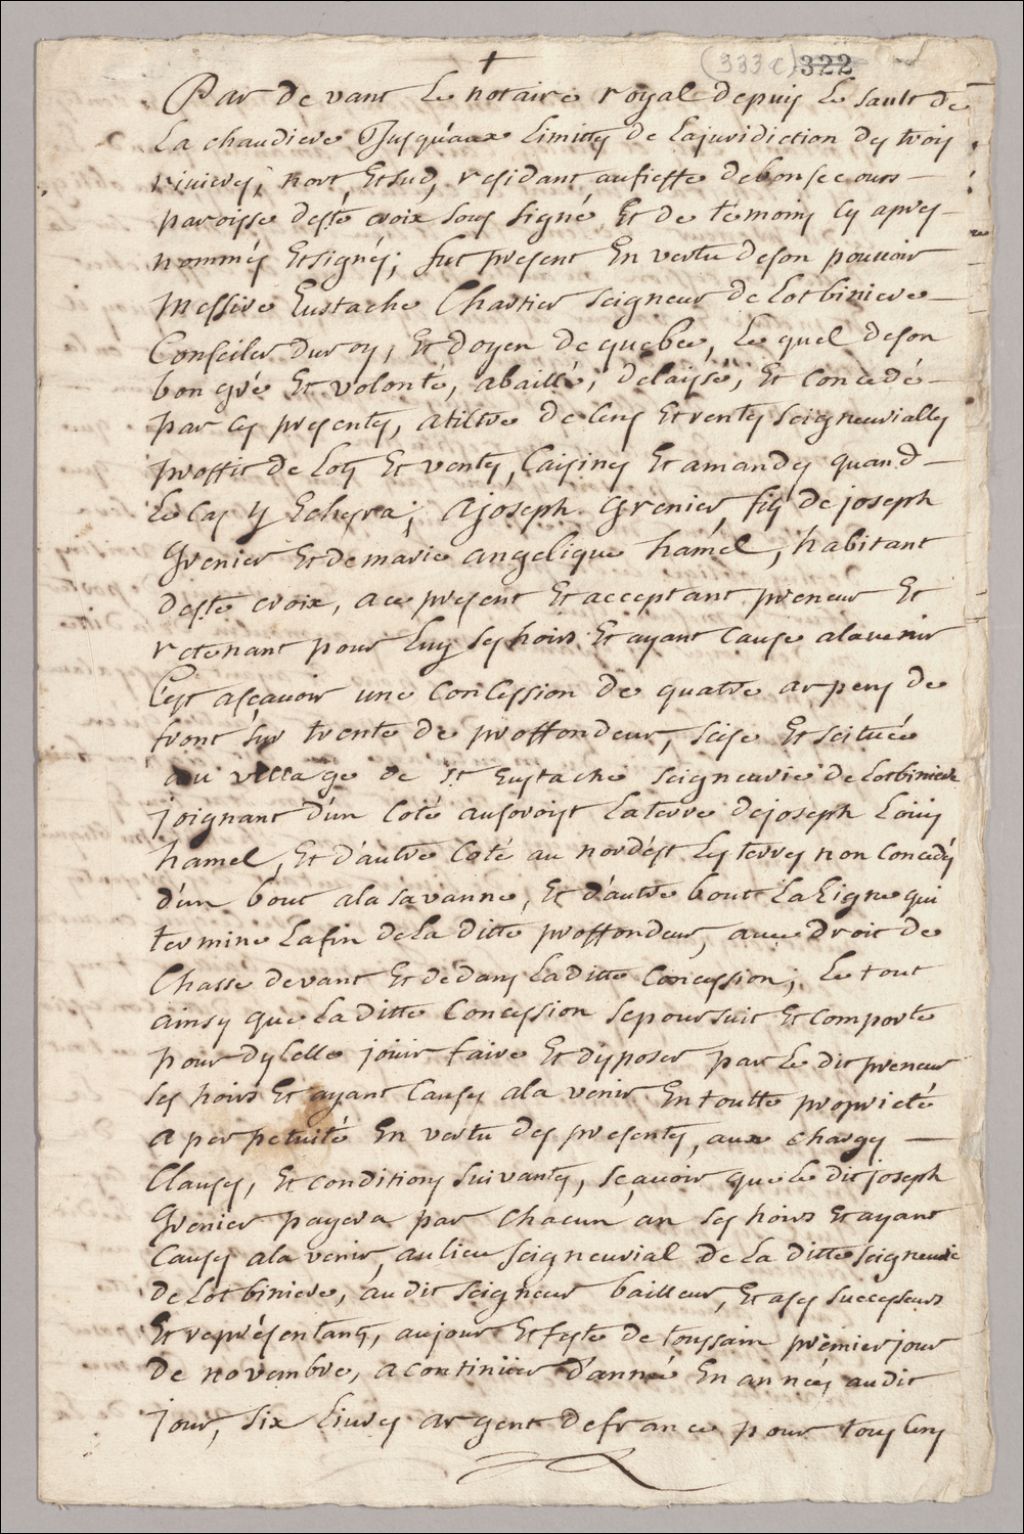 (333c) 322
Par devant Le notaire royal depuis Le sault de
La chaudiere Jusqu'aux Limitte de La juridiction des trois
rivieres, nort, Et sud, residant au fieffe de bonsecours
paroisse de ste croix sous signé Et de temoins cy apres
nommés Et signés; fut present En vertu de son pouvoir
Messire Eustache Chartier seigneur de Lotbiniere
Conseiler du roy, Et doyen de quebec, Le quel de son
bon gré Et volonté, a baillé, delaissé, Et concedé
par ces presentes, a tiltre de Cens Et rentes seigneurialles
proffit de Lots Et ventes, saisines Et amandes quand
Le cas y Echerra; a joseph Grenier fils de joseph
Grenier Et de marie angelique hamel, habitant
de ste croix, a ce present Et acceptant preneur Et
retenant pour Luy ses hoirs Et ayant cause a la venir
C'est a sçavoir une Concession de quatre arpens de
front sur trente de proffondeur, scise Et scituée
au village de st Eustache seigneurie de Lotbiniere
joignant d'un coté au sorois La terre de joseph Loüis
hamel, Et d'autre coté au nordest Les terres non Concedés
d'un bout a la savanne, Et d'autre bout La Ligne qui
termine La fin de La Ditte proffondeur, avec Droit de
Chasse devant Et dedans La ditte Concession; Le tout
ainsy que La Ditte Concession se poursuit Et comporte
pour d'ycelle joüir faire Et disposer par Le dit preneur
ses hoirs Et ayant Causes a la venir En toutte proprieté
a perpetuité En vertu des presentes, aux charges
Clauses, Et conditions suivantes, sçavoir que Le dit joseph
Grenier payera par chacun an ses hoirs Et ayant
Causes a la venir, au lieu seigneurial de La Ditte seigneurie
de Lotbiniere, au dit seigneur bailleur, Et a ses successeurs
Et représentants, au jour Et feste de toussain premier jour
de novembre, a continüer d'anné En annéés au dit
jour, six Livres argent de france pour tous Cens